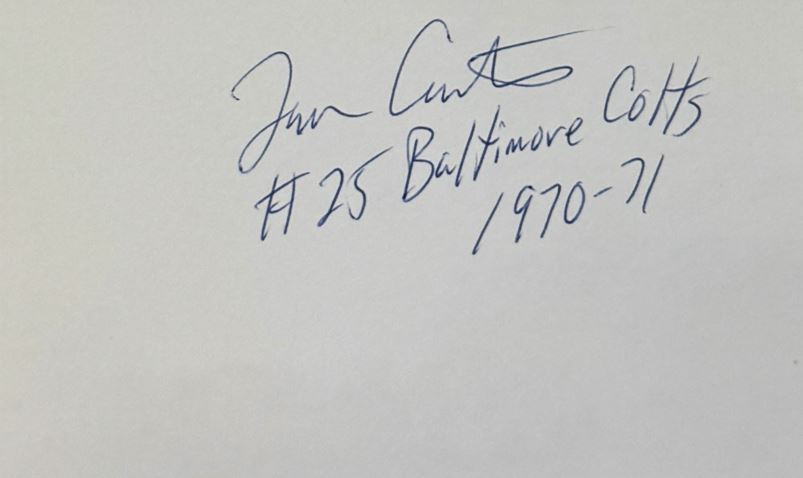 Tom Curtis
#25 Baltimore Colts
1970-71